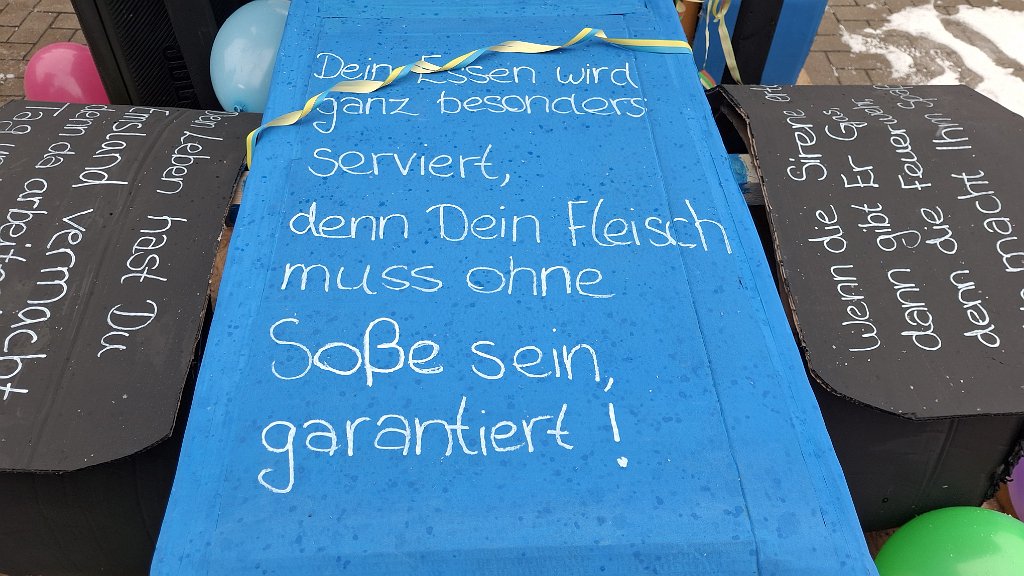 Dein Essen wird
ganz besonders
serviert,
denn Dein Fleisch
muss ohne
Soße sein,
garantiert !
Dein Leben hast Du
Emsland vermacht
denn da arbeitest
Tag
Wenn die Sirene
dann gibt Er Gas
denn die Feuerwehr
macht Ihn